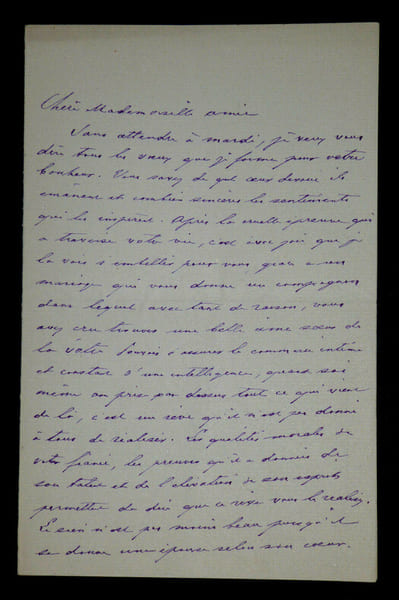 Chère Mademoiselle amie
Sans attendre à mardi, je veux vous
dire tous les vœux que je forme pour votre
bonheur. Vous savez de quel cœur dévoué ils
émanent et combien sincères les sentiments
qui les inspirent. Après la cruelle épreuve qui
a traversé votre vie, c'est avec joie que je
la vois s'embellir pour vous, grâce à un
mariage qui vous donne un compagnon
dans lequel avec tant de raison, vous
avez cru trouver une belle âme sœur de
la vôtre. Pouvoir s'assurer le commerce intime
et constant d'une intelligence, quand soi
même on prise par dessus tout ce qui vient
de là, c'est un rêve qu'il n'est pas donné
à tous de réaliser. Les qualités morales de
votre fiancé, les preuves qu'il a données de
son talent et de l'élévation de son esprit
permettent de dire que ce rêve vous le réalisez.
Le sien n'est pas moins beau puisqu'il
se donne une épouse selon son cœur.